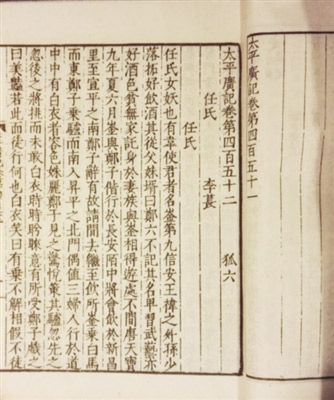 太平廣記卷第四百五十一
太平廣記卷第四百五十二 狐六
任氏 李萇
任氏
任氏女妖也有韋使君者名崟第九信安王禕之外孫少
落拓好飲酒其從父妹壻曰鄭六不記其名早習武藝亦
好酒色貧無家託身於妻族與崟相得遊處不間唐天寶
九年夏六月崟與鄭子偕行於長安陌中將會飲於新昌
里至宣平之南鄭子辭有故請間去繼至飲所崟乘白馬
而東鄭子乘驢而南入昇平之北門偶值三婦人行於道
中中有白衣者容色姝麗鄭子見之驚悅策其驢忽先之
忽後之將挑而未敢白衣時時盼睞意有所受鄭子戲之
曰美豔若此而徒行何也白衣笑曰有乘不解相假不徒